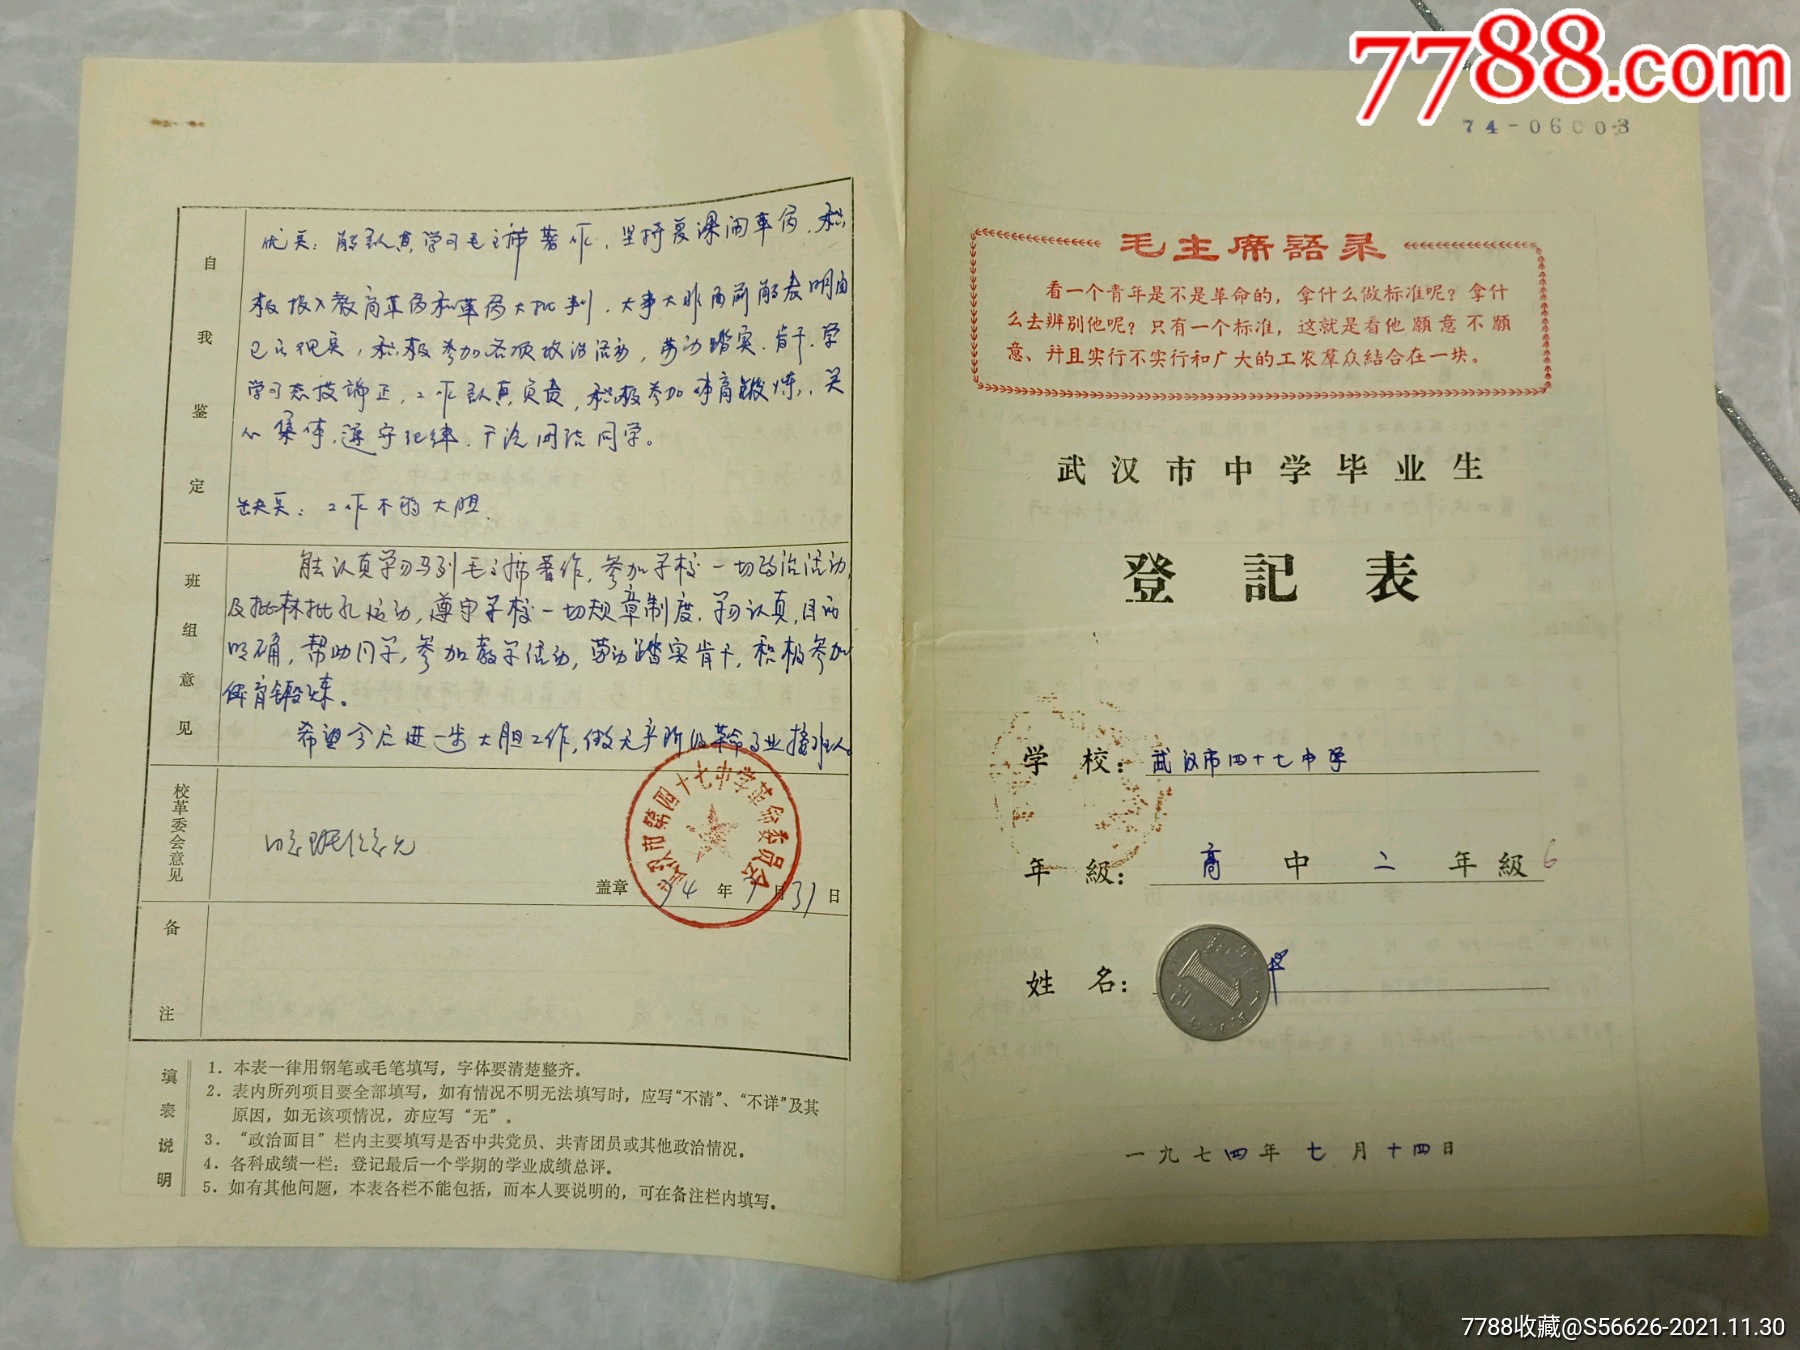 7788.com
74-06003
自我鉴定
优点：能认真学习毛主席著作，坚持复课闹革命，积
极投入教育革命和革命大批判，大事大非面前能表明自
己的观点，积极参加各项政治活动，劳动踏实，肯干，学
学习态度端正，工作认真负责，积极参加体育锻炼，关
心集体，遵守纪律，干活团结同学。
缺点：工作不够大胆
班组意见
能认真学习马列毛主席著作，参加学校一切政治活动，
及批林批孔运动，遵守学校一切规章制度，学习认真，目的
明确，帮助同学，参加教学活动，劳动踏实肯干，积极参加
体育锻炼。
希望今后进一步大胆工作，做无产阶级革命事业接班人。
校革委会意见
同意班组意见
武汉市第四十七中学革命委员会
盖章 74年7月31日
备注
填表说明
1．本表一律用钢笔或毛笔填写，字体要清楚整齐。
2．表内所列项目要全部填写，如有情况不明无法填写时，应写“不清”、“不详”及其
原因，如无该项情况，亦应写“无”。
3．“政治面目”栏内主要填写是否中共党员、共青团员或其他政治情况。
4．各科成绩一栏：登记最后一个学期的学业成绩总评。
5．如有其他问题，本表各栏不能包括，而本人要说明的，可在备注栏内填写。
毛主席語录
看一个青年是不是革命的，拿什么做标准呢？拿什
么去辨别他呢？只有一个标准，这就是看他願意不願
意、并且实行不实行和广大的工农羣众結合在一块。
武汉市中学毕业生
登記表
学校：武汉市四十七中学
年級：高中二年級6
姓名：
1
一九七四年七月十四日
7788收藏@S56626-2021.11.30